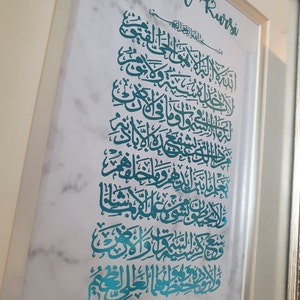 Kursi
بسم الله الرحمن الرحيم
الله لا إله إلا هو الحي القيوم
لا تأخذه سنة ولا نوم
له ما في السموات وما في الأرض
من ذا الذي يشفع عنده إلا بإذنه
يعلم ما بين أيديهم وما خلفهم
ولا يحيطون بشيء من علمه إلا بما شاء
وسع كرسيه السموات والأرض
ولا يؤوده حفظهما وهو العلي العظيم